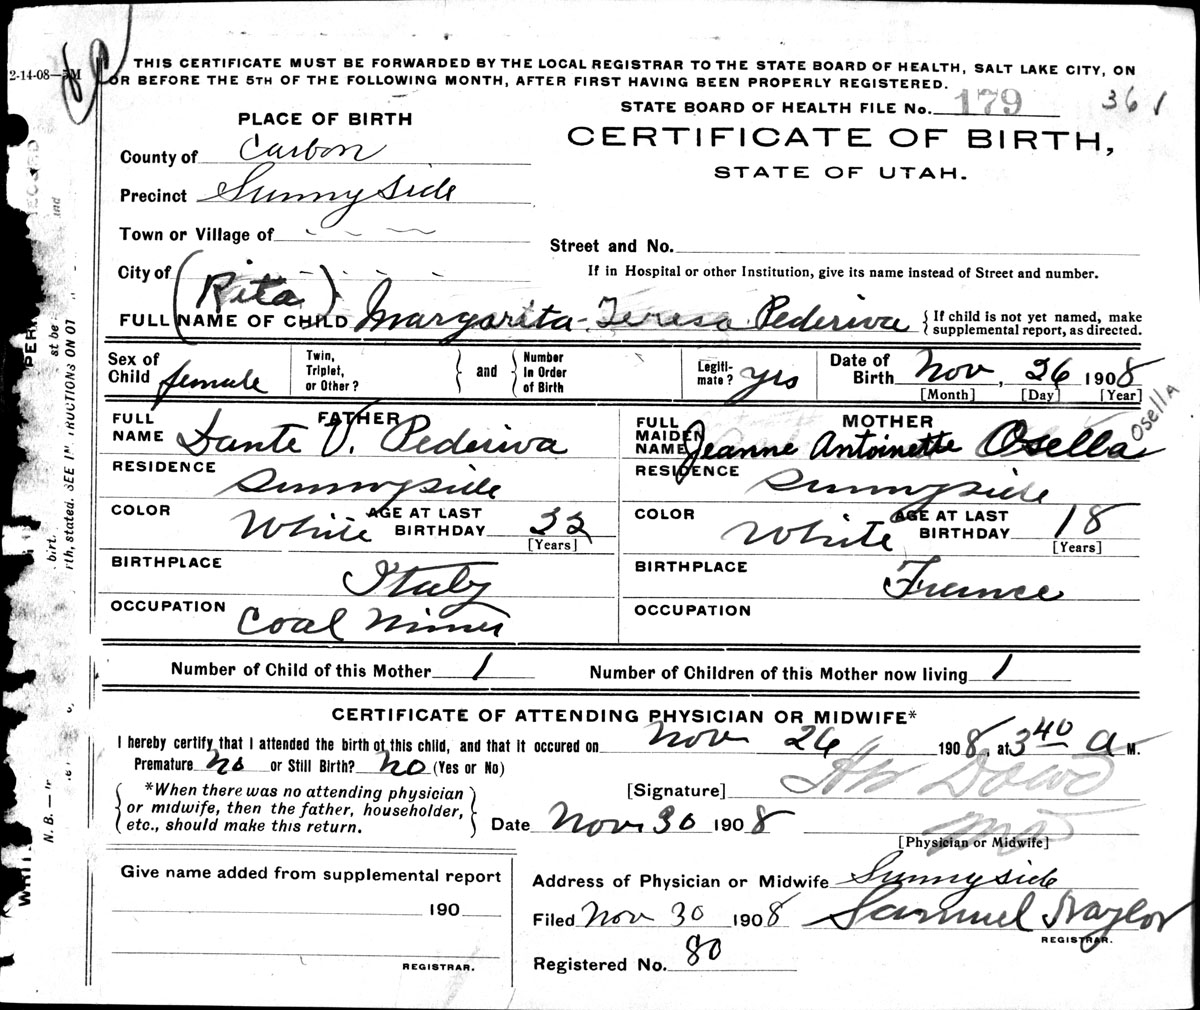 2-14-08—5M
THIS CERTIFICATE MUST BE FORWARDED BY THE LOCAL REGISTRAR TO THE STATE BOARD OF HEALTH, SALT LAKE CITY, ON
OR BEFORE THE 5TH OF THE FOLLOWING MONTH, AFTER FIRST HAVING BEEN PROPERLY REGISTERED.
STATE BOARD OF HEALTH FILE No. 179 361
PLACE OF BIRTH
CERTIFICATE OF BIRTH,
STATE OF UTAH.
County of Carbon
Precinct Sunnyside
Town or Village of
Street and No.
City of
If in Hospital or other Institution, give its name instead of Street and number.
(Rita)
FULL NAME OF CHILD Margarita Teresa Pederiva
{If child is not yet named, make
supplemental report, as directed.
Sex of Child female
Twin, Triplet, or Other?
and
Number in Order of Birth
Legiti-mate? yes
Date of Birth Nov, 26 1908
[Month] [Day] [Year]
FATHER
FULL NAME Dante V. Pederiva
RESIDENCE Sunnyside
COLOR White AGE AT LAST BIRTHDAY 22
[Years]
BIRTHPLACE Italy
OCCUPATION Coal Miner
MOTHER
FULL MAIDEN NAME Jeanne Antoinette Osella Osella
RESIDENCE Sunnyside
COLOR White AGE AT LAST BIRTHDAY 18
[Years]
BIRTHPLACE France
OCCUPATION
Number of Child of this Mother 1 Number of Children of this Mother now living 1
CERTIFICATE OF ATTENDING PHYSICIAN OR MIDWIFE*
I hereby certify that I attended the birth of this child, and that it occured on Nov 26 1908, at 3 40 a M.
Premature no or Still Birth? no (Yes or No)
*When there was no attending physician
or midwife, then the father, householder,
etc., should make this return.
[Signature] HW Dowd
Date Nov 30 1908
MD
[Physician or Midwife]
Give name added from supplemental report
190
REGISTRAR.
Address of Physician or Midwife Sunnyside
Filed Nov 30 1908 Samuel Naylor
REGISTRAR.
Registered No. 80
N. B.—
rth, stated. SEE INSTRUCTIONS ON